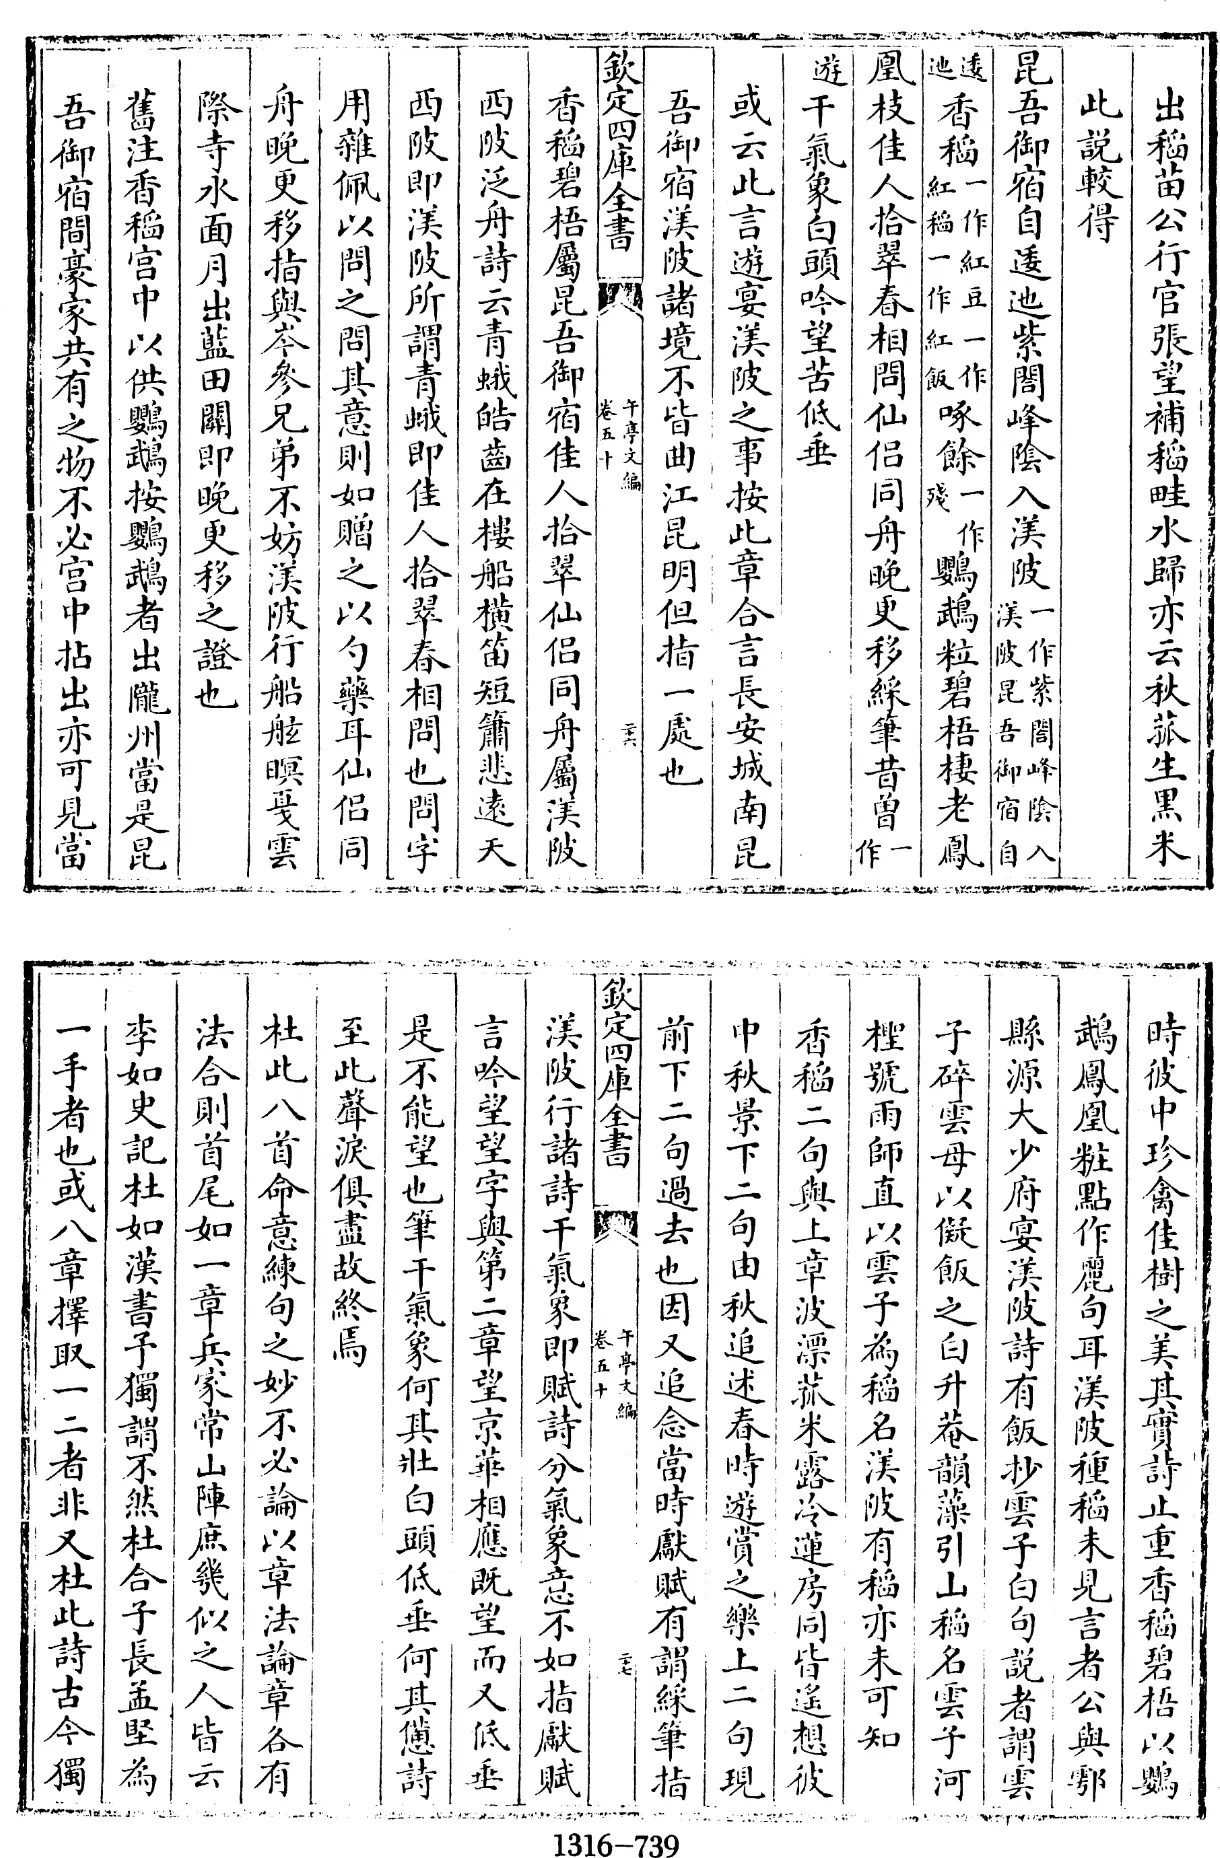 出稻苗公行官張望補稻畦水歸亦云秋菰生黑米
此説較得
昆吾御宿自逶迤紫閣峰陰入渼陂一作紫閣峰陰入渼陂昆吾御宿自
逶迤香稻一作紅豆一作紅稻一作紅飯啄餘一作殘鸚鵡粒碧梧棲老鳳
凰枝佳人拾翠春相問仙侣同舟晚更移綵筆昔曾一作
遊干氣象白頭吟望苦低垂
或云此言遊宴渼陂之事按此章合言長安城南昆
吾御宿渼陂諸境不皆曲江昆明但指一處也
欽定四庫全書
午亭文編
卷五十
二十六
香稻碧梧屬昆吾御宿佳人拾翠仙侣同舟屬渼陂
西陂泛舟詩云青蛾皓齒在樓船横笛短簫悲遠天
西陂即渼陂所謂青蛾即佳人拾翠春相問也問字
用雜佩以問之問其意則如贈之以勺藥耳仙侣同
舟晚更移指與岑參兄弟不妨渼陂行船舷暝戛雲
際寺水面月出藍田關即晚更移之證也
舊注香稻宫中以供鸚鵡按鸚鵡者出隴州當是昆
吾御宿間豪家共有之物不必宫中拈出亦可見當
時彼中珍禽佳樹之美其實詩止重香稻碧梧以鸚
鵡鳳凰粧點作麗句耳渼陂種稻未見言者公與鄠
縣源大少府宴渼陂詩有飯抄雲子白句説者謂雲
子碎雲母以儗飯之白升菴韻藻引山稻名雲子河
檉號雨師直以雲子為稻名渼陂有稻亦未可知
香稻二句與上章波漂菰米露冷蓮房同皆遥想彼
中秋景下二句由秋追述春時遊賞之樂上二句現
前下二句過去也因又追念當時獻賦有謂綵筆指
欽定四庫全書
午亭文編
卷五十
二十七
渼陂行諸詩干氣象即賦詩分氣象意不如指獻賦
言吟望望字與第二章望京華相應既望而又低垂
是不能望也筆干氣象何其壯白頭低垂何其憊詩
至此聲淚俱盡故終焉
杜此八首命意練句之妙不必論以章法論章各有
法合則首尾如一章兵家常山陣庶幾似之人皆云
李如史記杜如漢書予獨謂不然杜合子長孟堅為
一手者也或八章擇取一二者非又杜此詩古今獨
1316-739